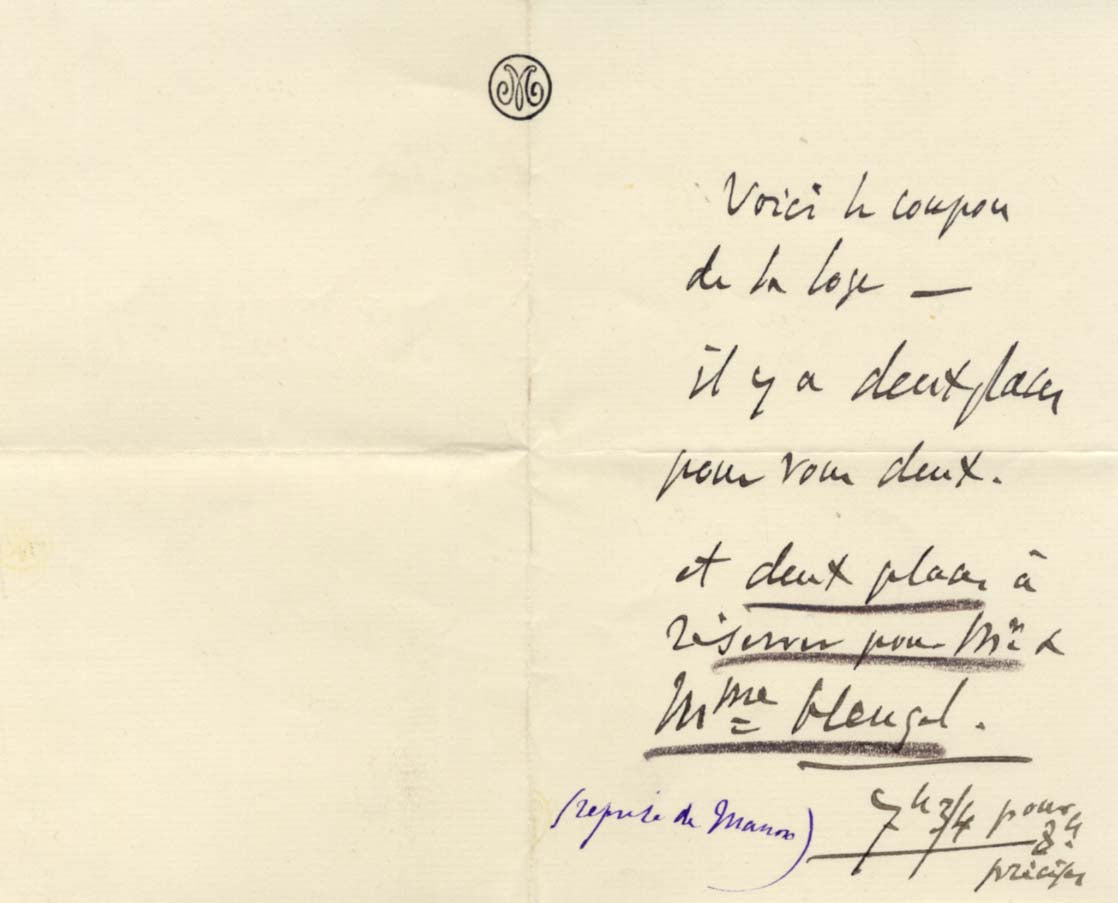 M
Voici le coupon
de la loge —
il y a deux places
pour vous deux.
et deux places à
réserver pour Mr &
Mme Heugel.
(reprise de Manon)
7h 3/4 pour
8h
précises